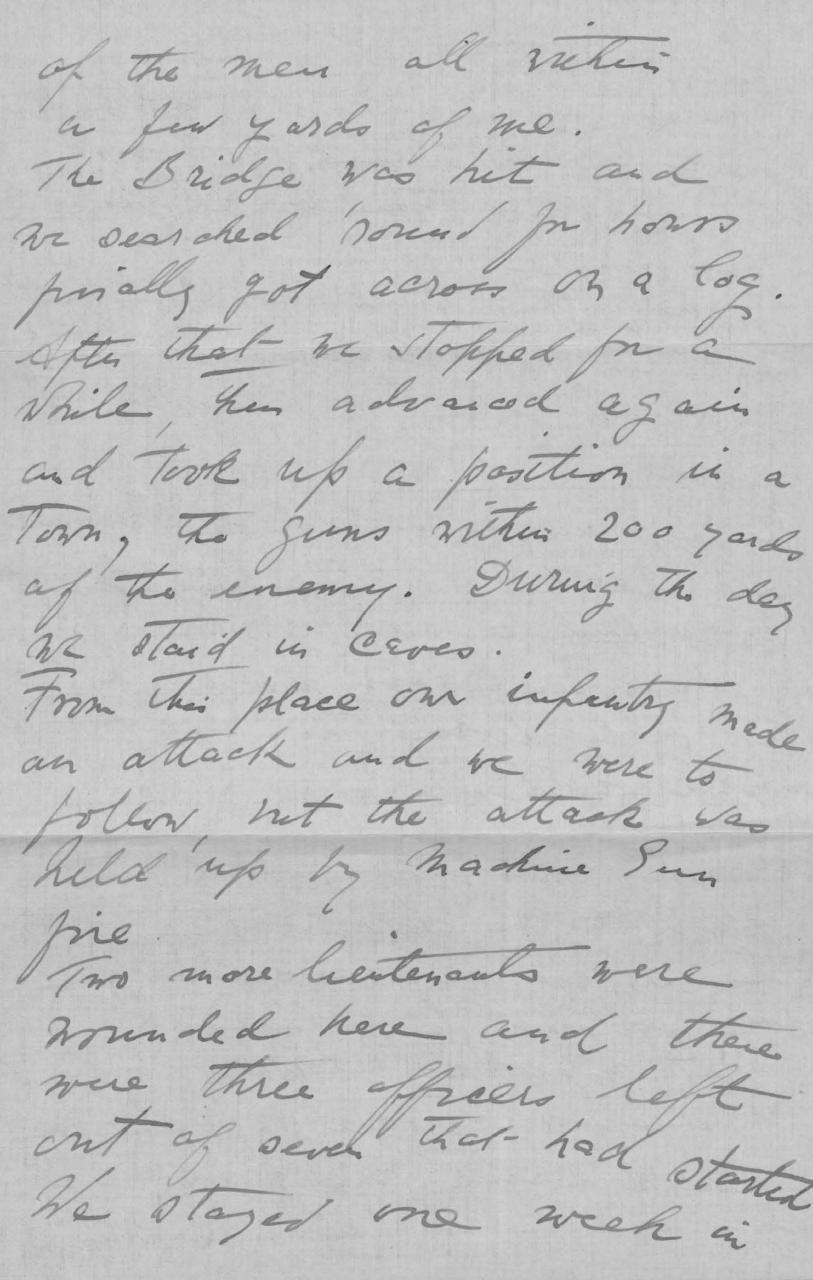 of the men all within
a few yards of me.
The Bridge was hit and
we searched 'round for hours
finally got across on a log.
After that we stopped for a
while, then advanced again
and took up a position in a
Town, the guns within 200 yards
of the enemy. During the day
we staid in caves.
From this place our infantry made
an attack and we were to
follow, but the attack was
held up by Machine Gun
fire
Two more lieutenants were
wounded here and there
were three officers left
out of seven that had started
We stayed one week in